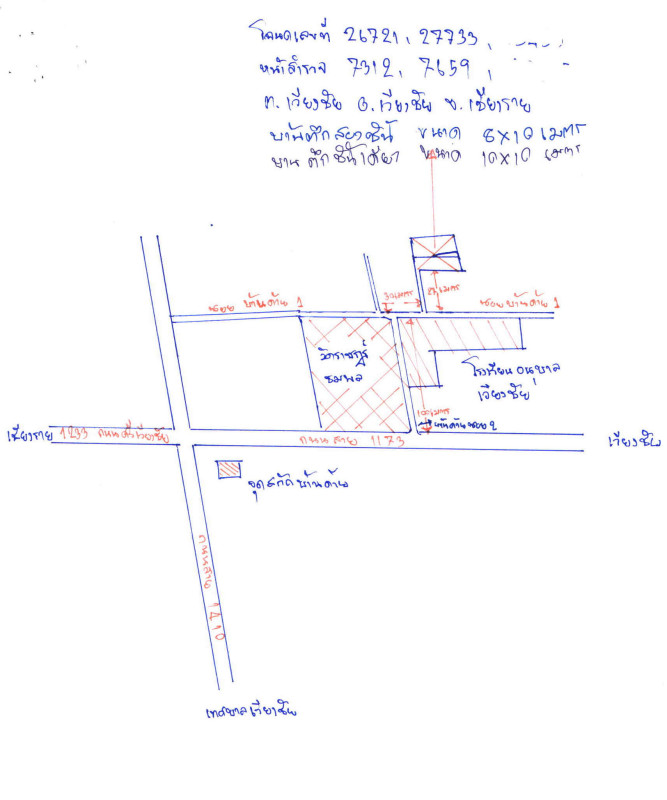 โฉนดเลขที่ 26721, 27733,
หน้าสำรวจ 7312, 7659,
ต.เวียงชัย อ.เวียงชัย จ.เชียงราย
บ้านตึกสองชั้น ขนาด 8X10 เมตร
บ้านตึกชั้นเดียว ขนาด 10X10 เมตร
ซอย บ้านด้าย 1
ซอยบ้านด้าย 1
โรงเรียนอนุบาล
เวียงชัย
100 เมตร
บ้านด้ายซอย 2
เชียงราย
1233
ถนนสาย 1173
เวียงชัย
จุดสกัดบ้านด้าย
ถนนสาย 1410
เทศบาลเวียงชัย